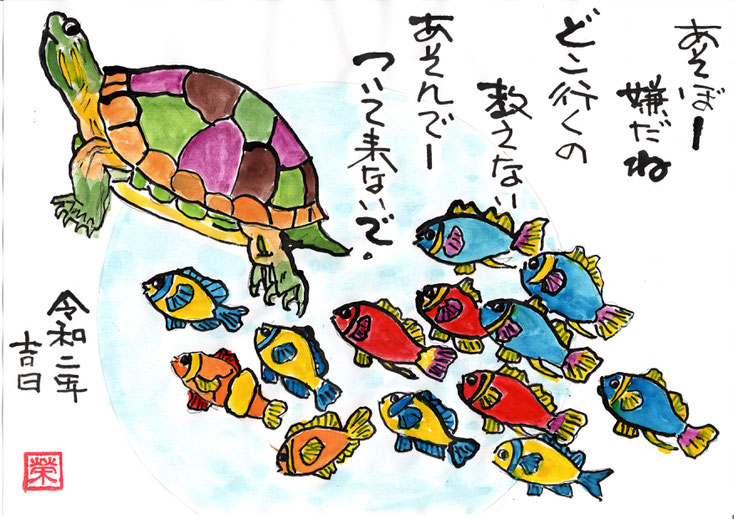 あそぼー
嫌だね
どこ行くの
教えない
あそんでー
ついて来ないで.
令和二年
吉日
栄